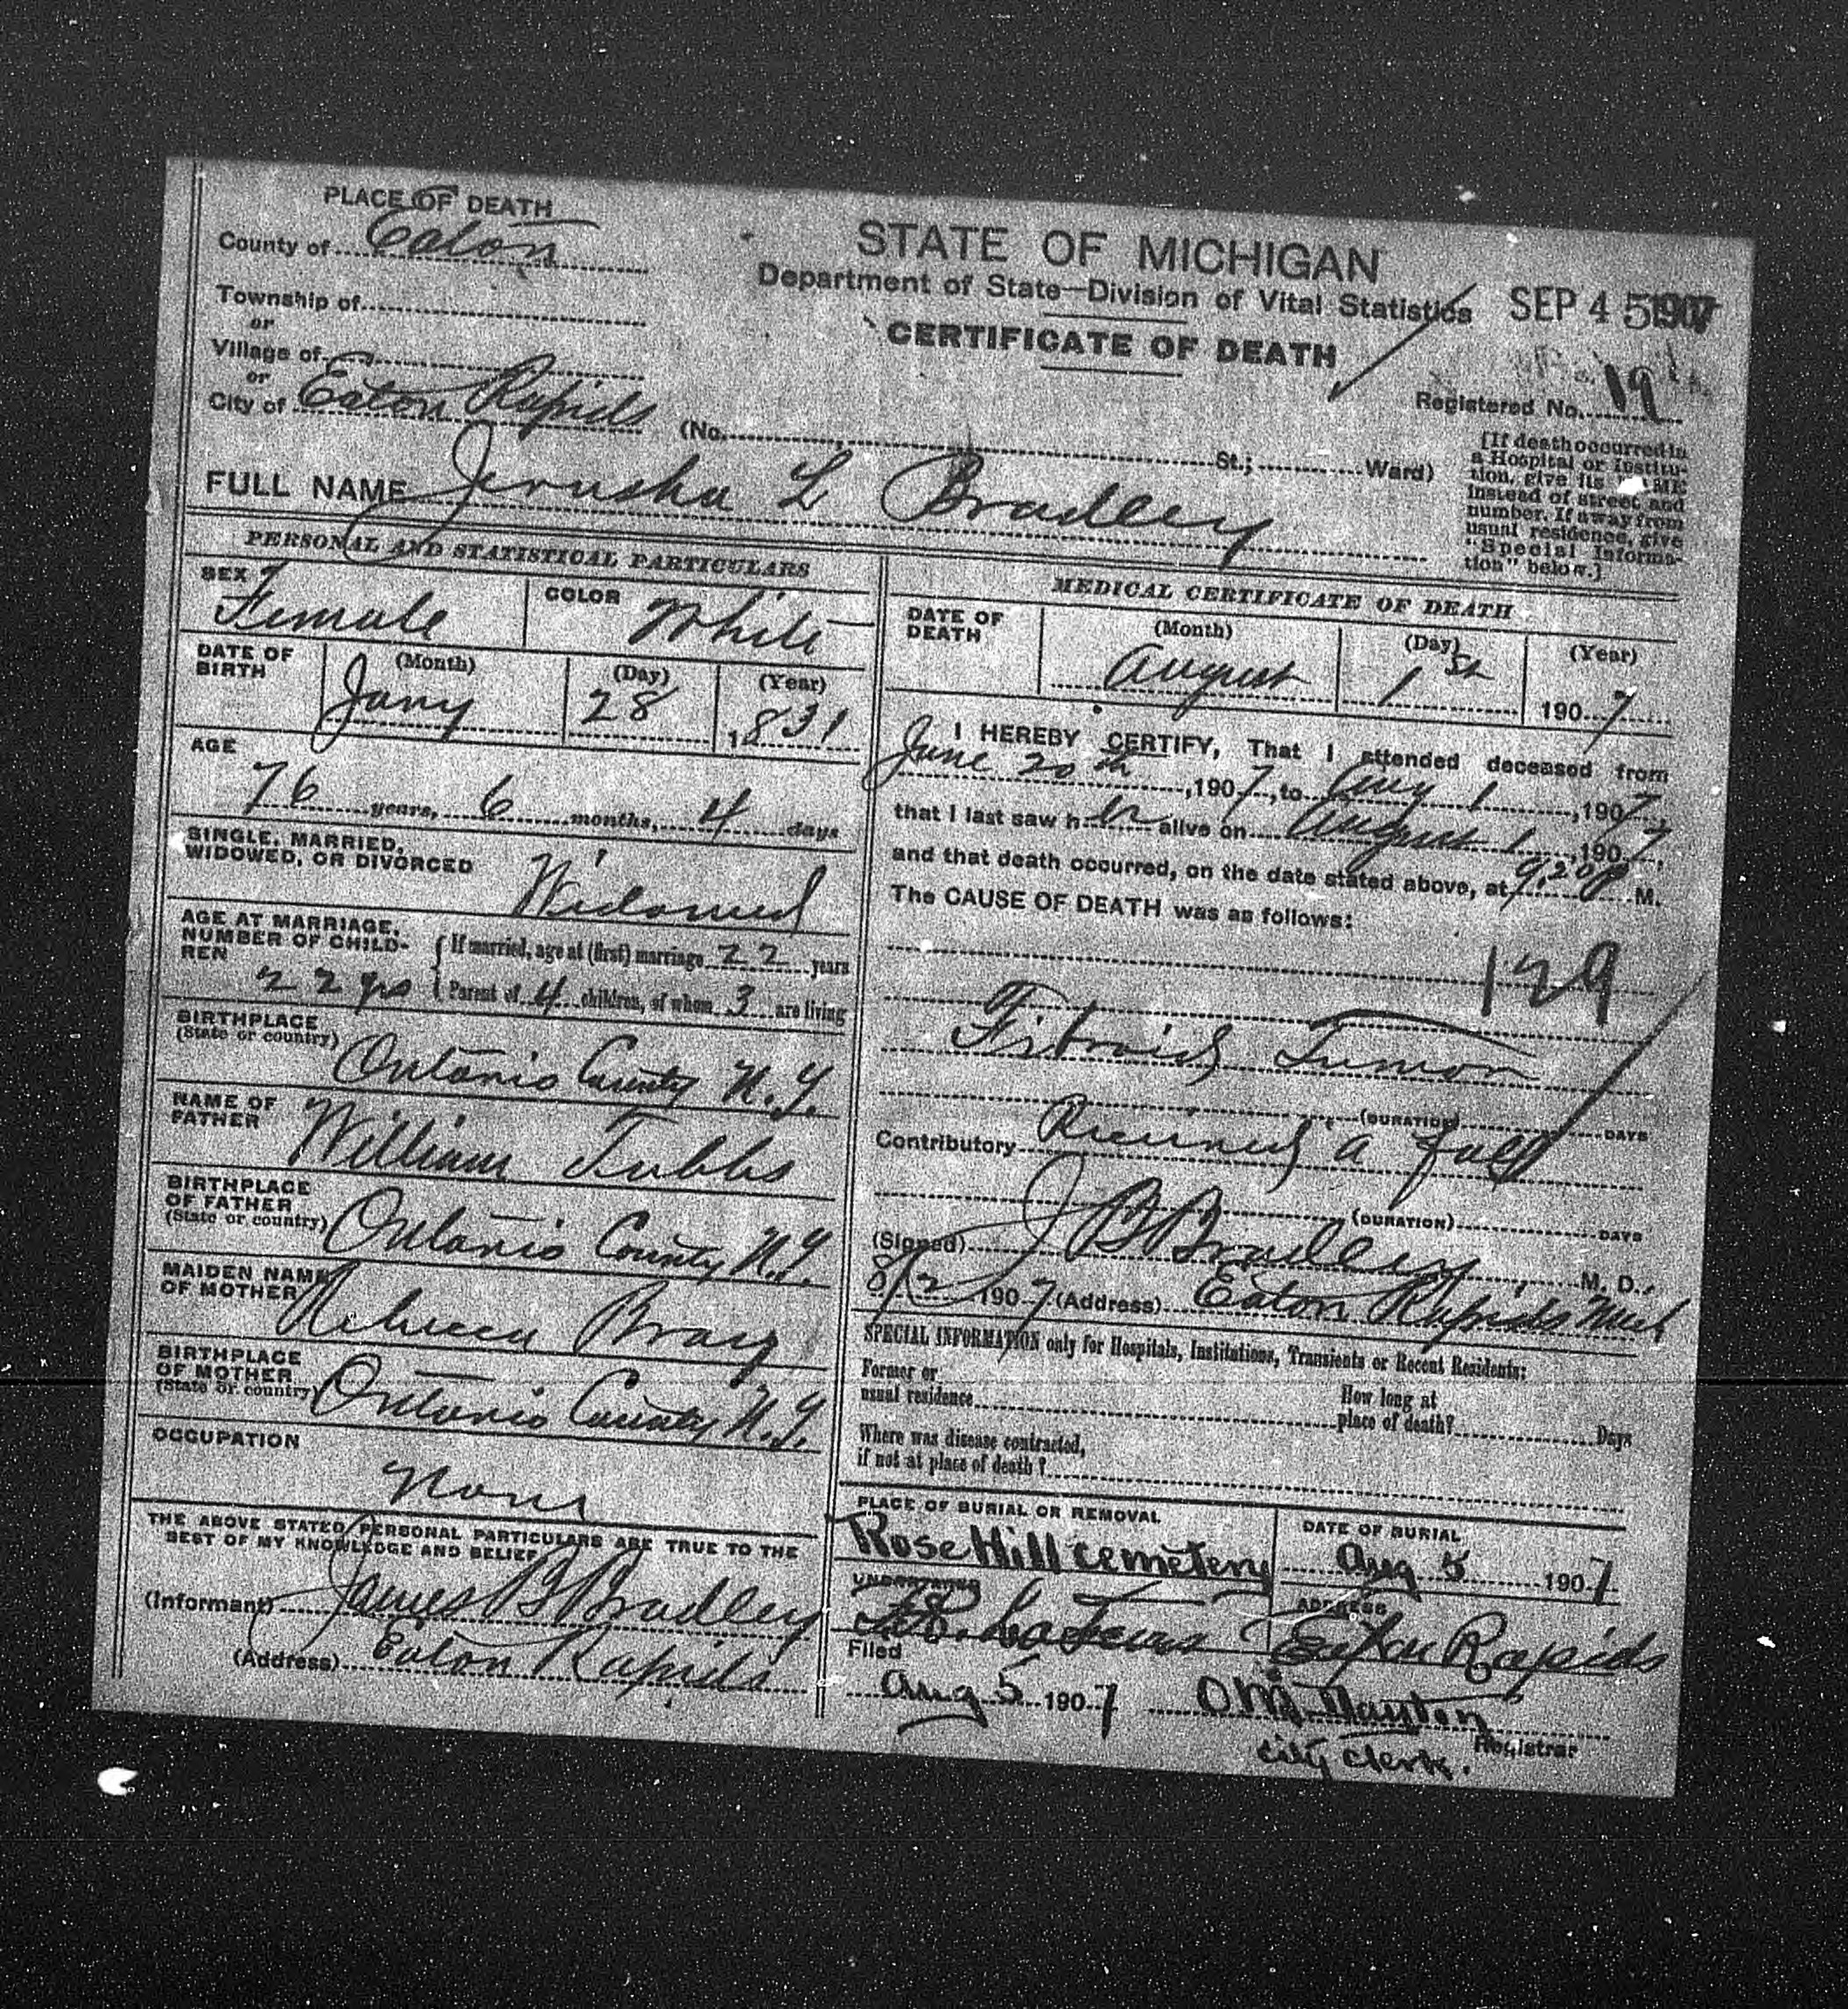 PLACE OF DEATH
County of Eaton
Township of
or
Village of
or
City of Eaton Rapids (No. St.; Ward)
STATE OF MICHIGAN
Department of State—Division of Vital Statistics
CERTIFICATE OF DEATH
SEP 4 5 1907
Registered No. 19
[If death occurred in
a Hospital or Institu-
tion, give its NAME
instead of street and
number. If away from
usual residence, give
"Special Informa-
tion" below.]
FULL NAME Jerusha L Bradley
PERSONAL AND STATISTICAL PARTICULARS
SEX Female
COLOR White
DATE OF
BIRTH
(Month) Jany
(Day) 28
(Year) 1831
AGE
76 years, 6 months, 4 days
SINGLE, MARRIED,
WIDOWED, OR DIVORCED Widowed
AGE AT MARRIAGE,
NUMBER OF CHILD-
REN 22 yrs
If married, age at (first) marriage 22 years
Parent of 4 children, of whom 3 are living
BIRTHPLACE
(State or country) Ontario County N.Y.
NAME OF
FATHER William Tubbs
BIRTHPLACE
OF FATHER
(State or country) Ontario County N.Y.
MAIDEN NAME
OF MOTHER Rebecca Bray
BIRTHPLACE
OF MOTHER
(State or country) Ontario County N.Y.
OCCUPATION
None
THE ABOVE STATED PERSONAL PARTICULARS ARE TRUE TO THE
BEST OF MY KNOWLEDGE AND BELIEF
(Informant) James B Bradley
(Address) Eaton Rapids
MEDICAL CERTIFICATE OF DEATH
DATE OF
DEATH
(Month) August
(Day) 1st
(Year) 1907
I HEREBY CERTIFY, That I attended deceased from
June 20th, 1907, to Aug 1, 1907,
that I last saw her alive on August 1, 1907,
and that death occurred, on the date stated above, at 9.20 P M.
The CAUSE OF DEATH was as follows:
129
Fibroid Tumor
(DURATION) DAYS
Contributory Received a fall
(DURATION) DAYS
(Signed) J B Bradley M. D.,
8/2 1907 (Address) Eaton Rapids Mich
SPECIAL INFORMATION only for Hospitals, Institutions, Transients or Recent Residents:
Former or
usual residence
How long at
place of death? Days
Where was disease contracted,
if not at place of death?
PLACE OF BURIAL OR REMOVAL
Rose Hill cemetery
DATE OF BURIAL
Aug 5 1907
UNDERTAKER
ADDRESS
Eaton Rapids
Filed
Aug 5 1907
Registrar
City Clerk.